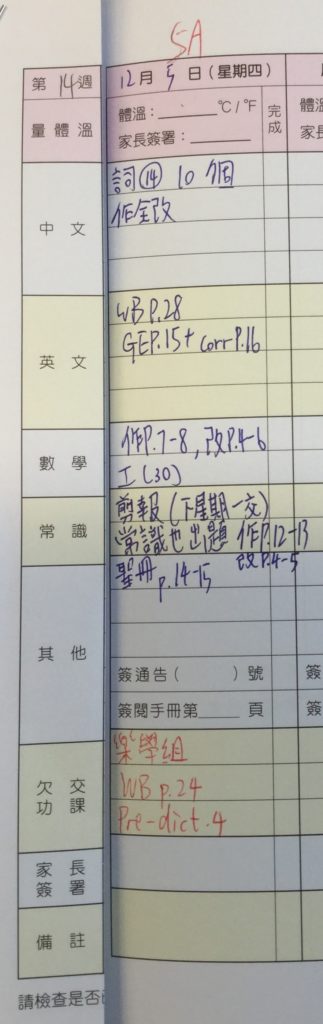 5A
第14週 12月5日(星期四)
量體溫 體溫:______°C/°F 完成
家長簽署:______
中文 詞⑭ 10個
作全改
英文 WB P.28
GE P.15 + corr P.16
數學 作P.7-8, 改P.4-6
工(30)
常識 剪報(下星期一交)
常識也出題 作P.12-13
改P.4-5
其他 聖冊 p.14-15
簽通告( )號
簽閱手冊第____頁
欠交功課 樂學組
WB p.24
Pre-dict.4
家長簽署
備註
請檢查是否